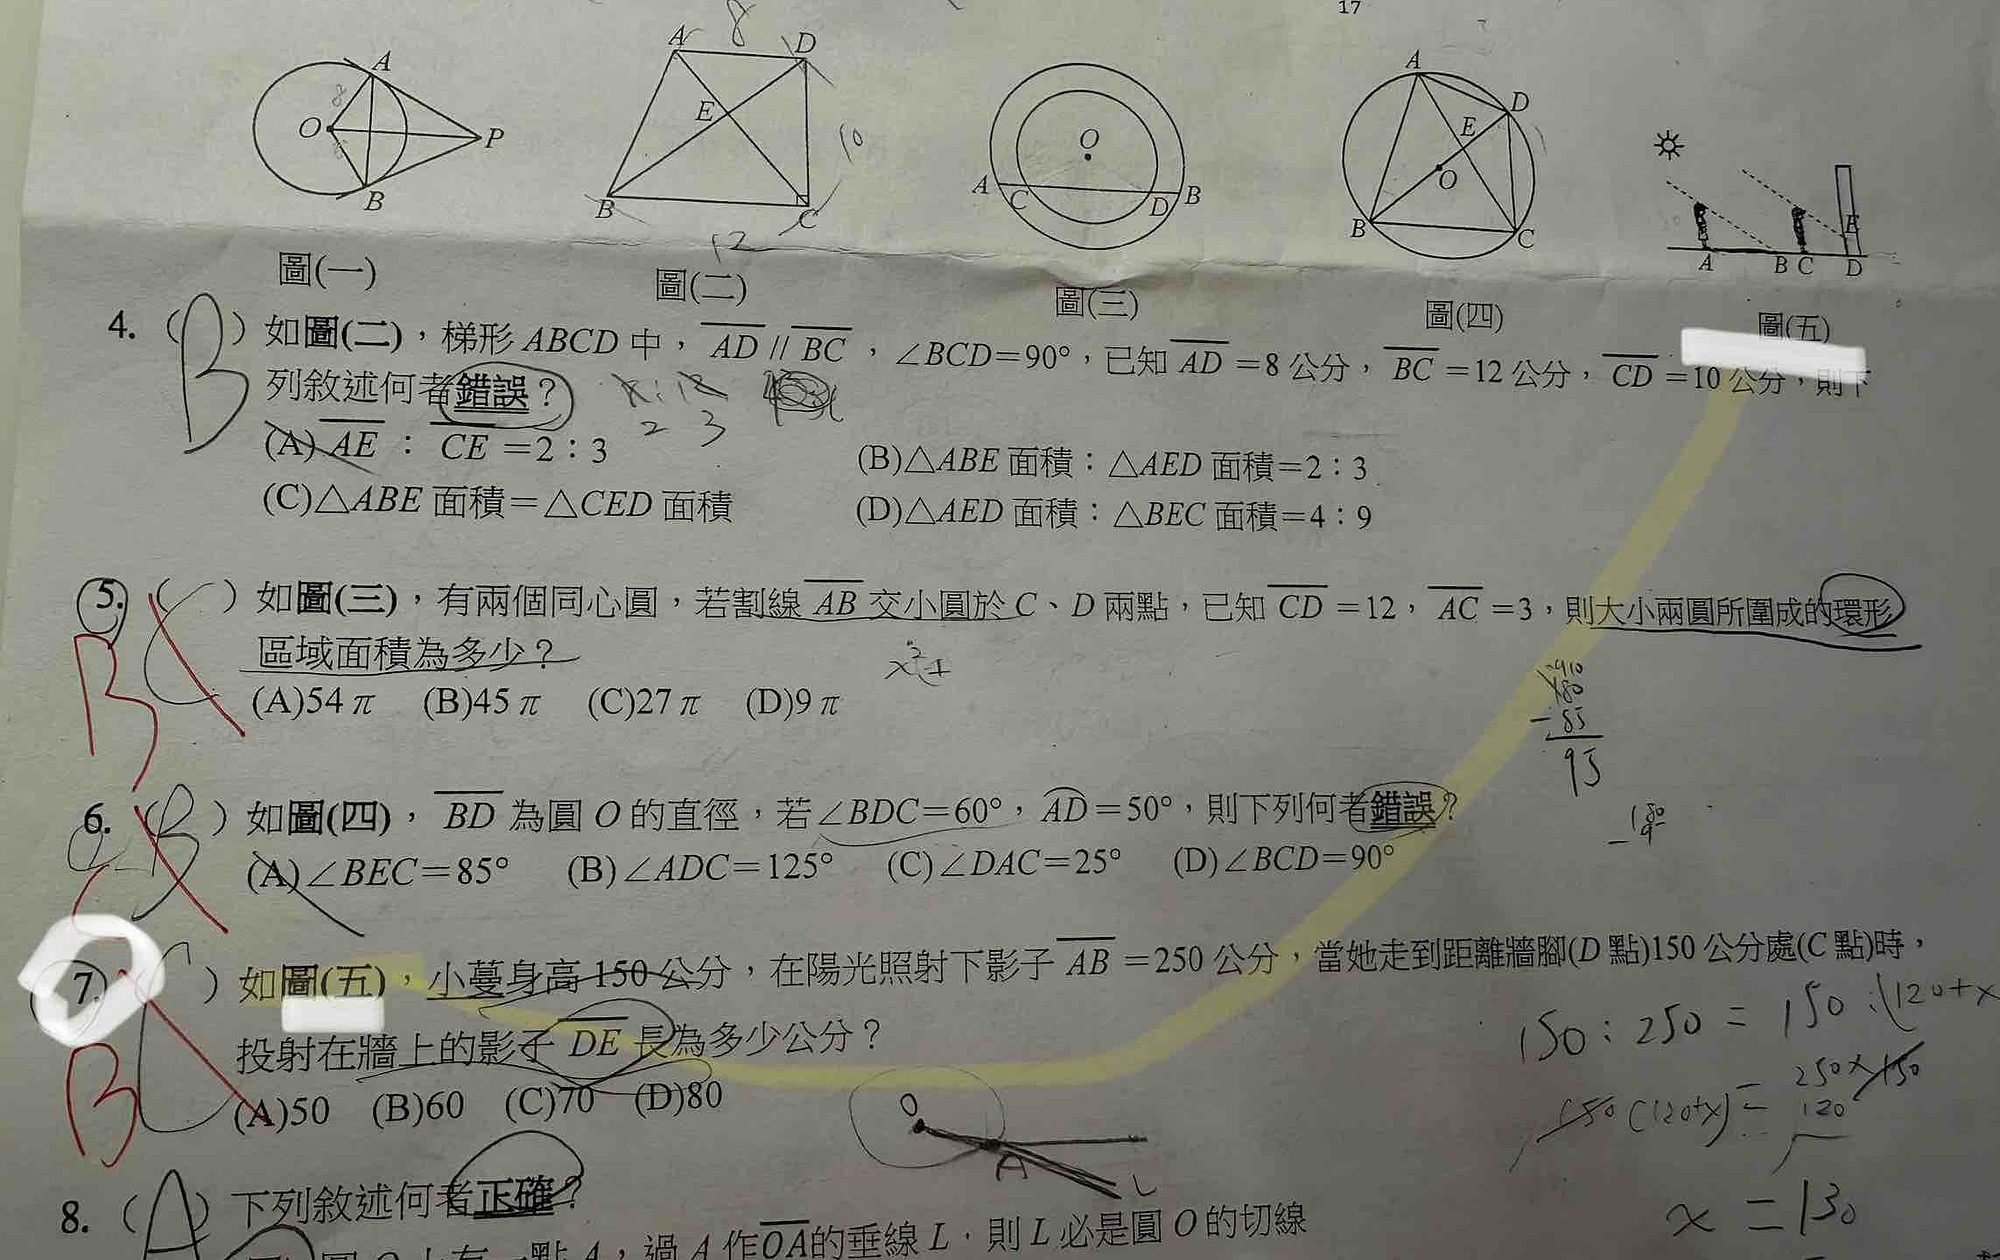 17
A 8 D
A
8
O
P
B
E
10
B
C
12
O
A C D B
A
D
E
O
B
C
E
A B C D
圖(一)
圖(二)
圖(三)
圖(四)
圖(五)
4. ( B ) 如圖(二)，梯形 ABCD 中，AD // BC，∠BCD=90°，已知 AD =8 公分，BC =12 公分，CD =10 公分，則下
列敘述何者錯誤？
2 3
(A) AE：CE =2：3
(B)△ABE 面積：△AED 面積=2：3
(C)△ABE 面積=△CED 面積
(D)△AED 面積：△BEC 面積=4：9
5. ( C ) 如圖(三)，有兩個同心圓，若割線 AB 交小圓於 C、D 兩點，已知 CD =12，AC =3，則大小兩圓所圍成的環形
B
區域面積為多少？
(A)54π (B)45π (C)27π (D)9π
180
-85
95
6. ( B ) 如圖(四)，BD 為圓 O 的直徑，若∠BDC=60°，AD=50°，則下列何者錯誤？
(A)∠BEC=85° (B)∠ADC=125° (C)∠DAC=25° (D)∠BCD=90°
7. ( C ) 如圖(五)，小蔓身高 150 公分，在陽光照射下影子 AB =250 公分，當她走到距離牆腳(D 點)150 公分處(C 點)時，
B
投射在牆上的影子 DE 長為多少公分？
(A)50 (B)60 (C)70 (D)80
150:250=150:(120+x
150(120+x)=
250×150
120
x=130
O
A
L
8. ( A ) 下列敘述何者正確？
一點 A，過 A 作OA的垂線 L，則 L 必是圓 O 的切線